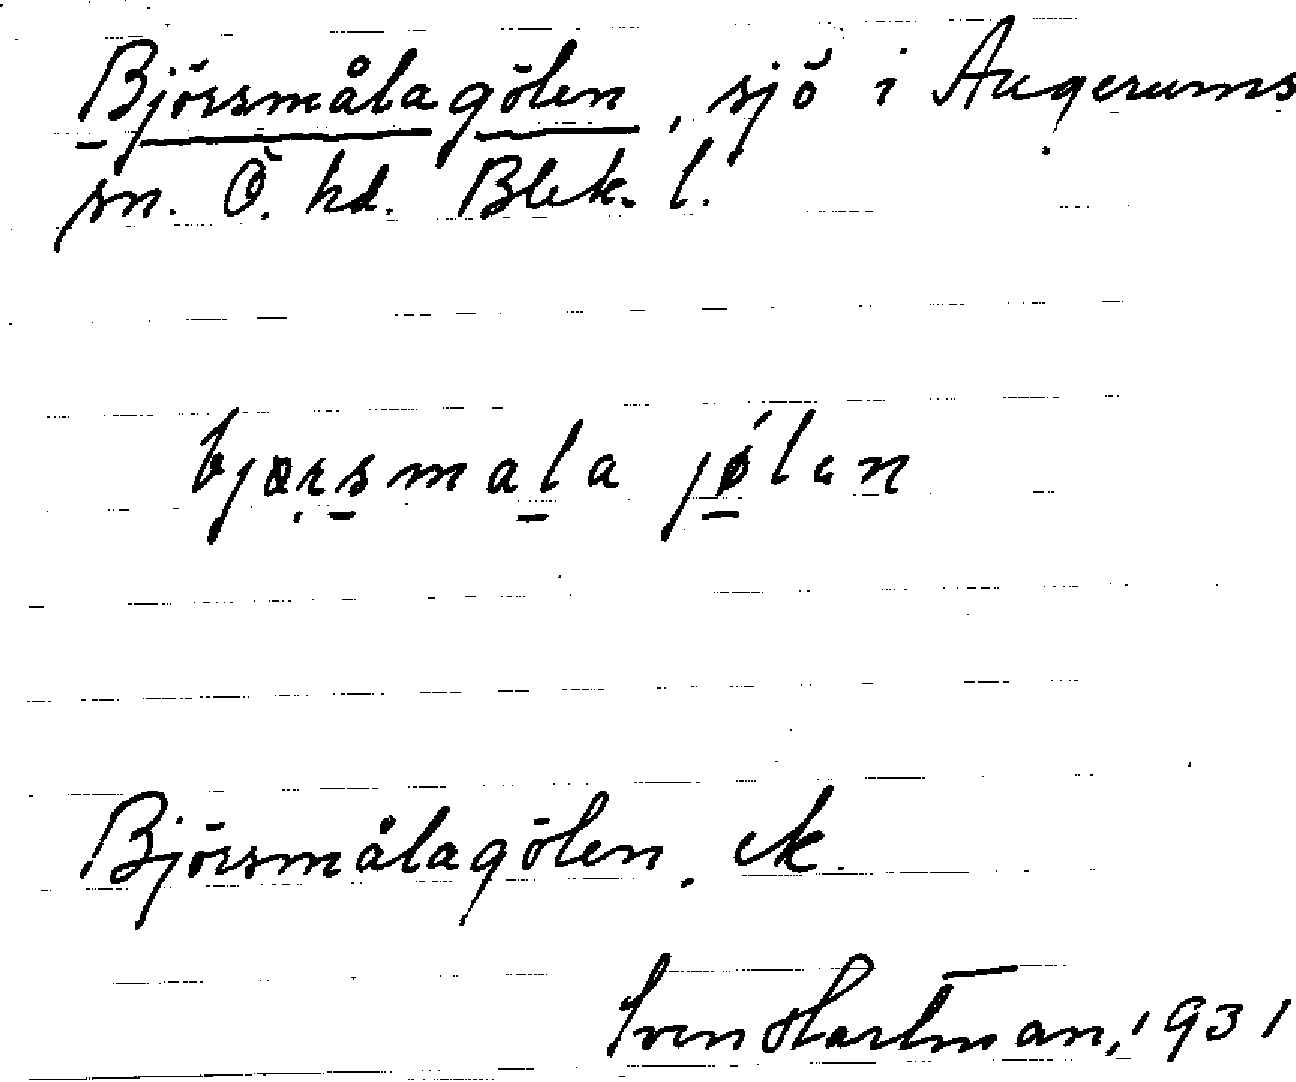 Björsmålagölen, sjö i Augerums
sn. Ö. hd. Blek. l.
bjørsmala jǿlen
Björsmålagölen. ek
Sven Hartman, 1931